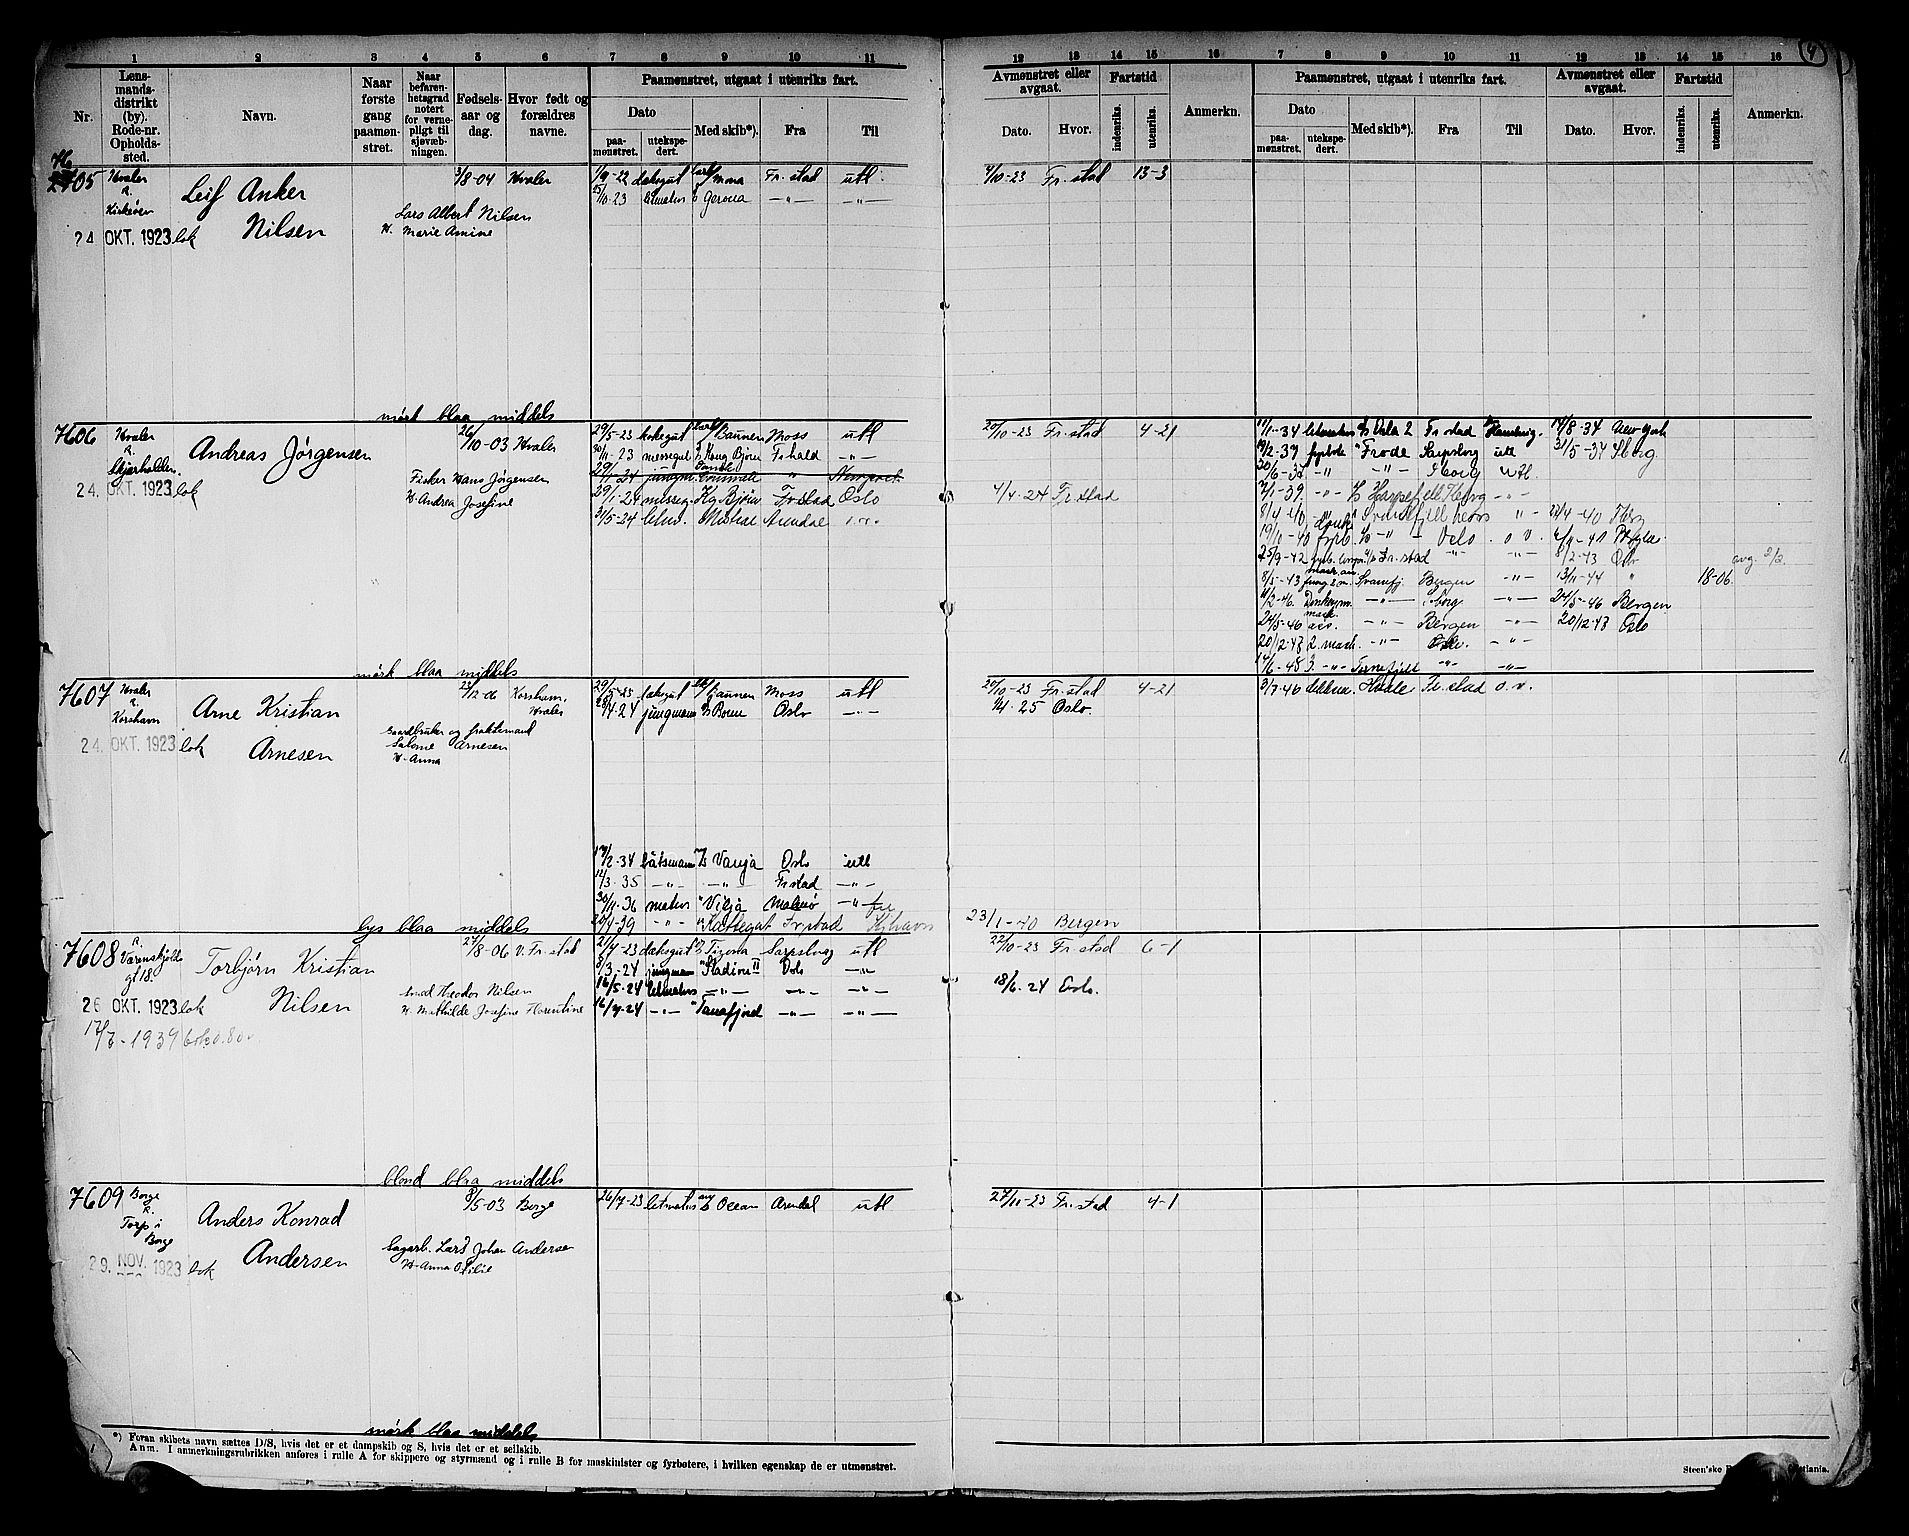 1 2 3 4 5 6 7 8 9 10 11
Nr.
Lens-
mands-
distrikt
(by).
Rode-nr.
Opholds-
sted.
Navn.
Naar
første
gang
paamøn-
stret.
Naar
befaren-
hetsgrad
notert
for verne-
pligt til
sjøvæb-
ningen.
Fødsels-
aar og
dag.
Hvor født og
forældres
navne.
Paamønstret, utgaat i utenriks fart.
Dato
paa-
mønstret.
utekspe-
dert.
Med skib*).
Fra
Til
12 13 14 15 16 7 8 9 10 11 12 13 14 15 16
4
Avmønstret eller
avgaat.
Dato.
Hvor.
Fartstid
indenriks.
utenriks.
Anmerkn.
Paamønstret, utgaat i utenriks fart.
Dato
paa-
mønstret.
utekspe-
dert.
Med skib*).
Fra
Til
Avmønstret eller
avgaat.
Dato.
Hvor.
Fartstid
indenriks.
utenriks.
Anmerkn.
7605
Hvaler
R.
Kirkeøen
24. OKT. 1923 lok
Leif Anker
Nilsen
3/8-04 Hvaler
Lars Albert Nilsen
H. Marie Amine
1/9-22 dæksgut Mona Fr.stad utl.
25/10-23 letmatros Gerona -"- -"-
4/10-23 Fr.stad 13-3
mørk blaa middels
7606
Hvaler
R.
Skjærhalden.
24. OKT. 1923 lok
Andreas Jørgensen
26/10-03 Hvaler
Fisker Hans Jørgensen
H. Andrea Josefine
29/5-23 kokegut Baunen Moss utl
30/11-23 messegut Kong Bjørn F.hald -"-
29/11 24 jungm Gamle " Newport
29/1-24 messeg. Kg Bjørn Fr.stad Oslo
31/5-34 letm. Arendal
20/10-23 Fr.stad 4-21
4/4-24 Fr.stad
17/1-34 letmatros Vala 2 Fr stad Hamburg. 14/8-34 New york
19/2-37 fyrbøte "Frode Sarpsborg utl 31/5-37 Sborg.
30/6-37 -"- -"- Sborg utl.
7/1-39. -"- -"-
8/4 40 -"- 23/4-40
19/11-40 fyrb. -"- Oslo o v.
25/9-42 Fr.stad -"- 8/2-43 Oslo
8/5-43 Bergen -"- 13/11-44 " 18-06.
11/2-46. Donkeym. -"- Sborg -"- 24/5-46 Bergen
24/5-46 mask ass. -"- Bergen -"- 20/12-47 Oslo
20/12-47 2. mask. -"- Oslo. -"-
14/6-48 3. -"- Tornefjell -"- -"-
mørk blaa middels
7607
Hvaler
R.
Korshavn
24. OKT. 1923 lok
Arne Kristian
Arnesen
22/12-06 Korshavn,
Hvaler
Gaardbruker og fraktemand
Salome Arnesen
H. Anna
29/5-23 dæksgut Baunen Moss utl
jungmann Oslo -"-
20/10-23 Fr.stad 4-21
Oslo.
3/7-46 Fr.stad o.v.
båtsmann Vanja Oslo utl
12/3.35 -"- -"- Fr.stad -"-
30/11-36 matros "Vilja Malmø -"-
20/4-39 -"- "Kattegat Fr.stad Kjhavn
23/1-40 Bergen
lys blaa middels
7608
R.
26 OKT. 1923 lok
17/7-1937
Torbjørn Kristian
Nilsen
27/8-06 V. Fr.stad
Theodor Nilsen
H. Mathilde Josefine Florentine
2/4-23 dæksgut Tizona Sarpsborg utl
8/3-24 jungmann "Stadion II Oslo -"-
16/5-24 letmatros -"- -"- -"-
16/7-24 -"- "Tanafjord -"- -"-
22/10-23 Fr.stad 6-1
18/6-24 Oslo.
blond blaa middels
7609
Borge
R.
Torp i
Borge
29. NOV. 1923 lok
Anders Konrad
Andersen
8/5-03 Borge
Sagarb. Lars Johan Andersen
H. Anna Otilie
26/7-23 letmatros Ocean Arendal utl
27/10-23 Fr.stad 4-1
mørk blaa middels
*) Foran skibets navn sættes D/S, hvis det er et dampskib og S, hvis det er et seilskib.
Anm. I anmerkningsrubrikken anføres i rulle A for skippere og styrmænd og i rulle B for maskinister og fyrbøtere, i hvilken egenskap de er utmønstret.
Steen'ske